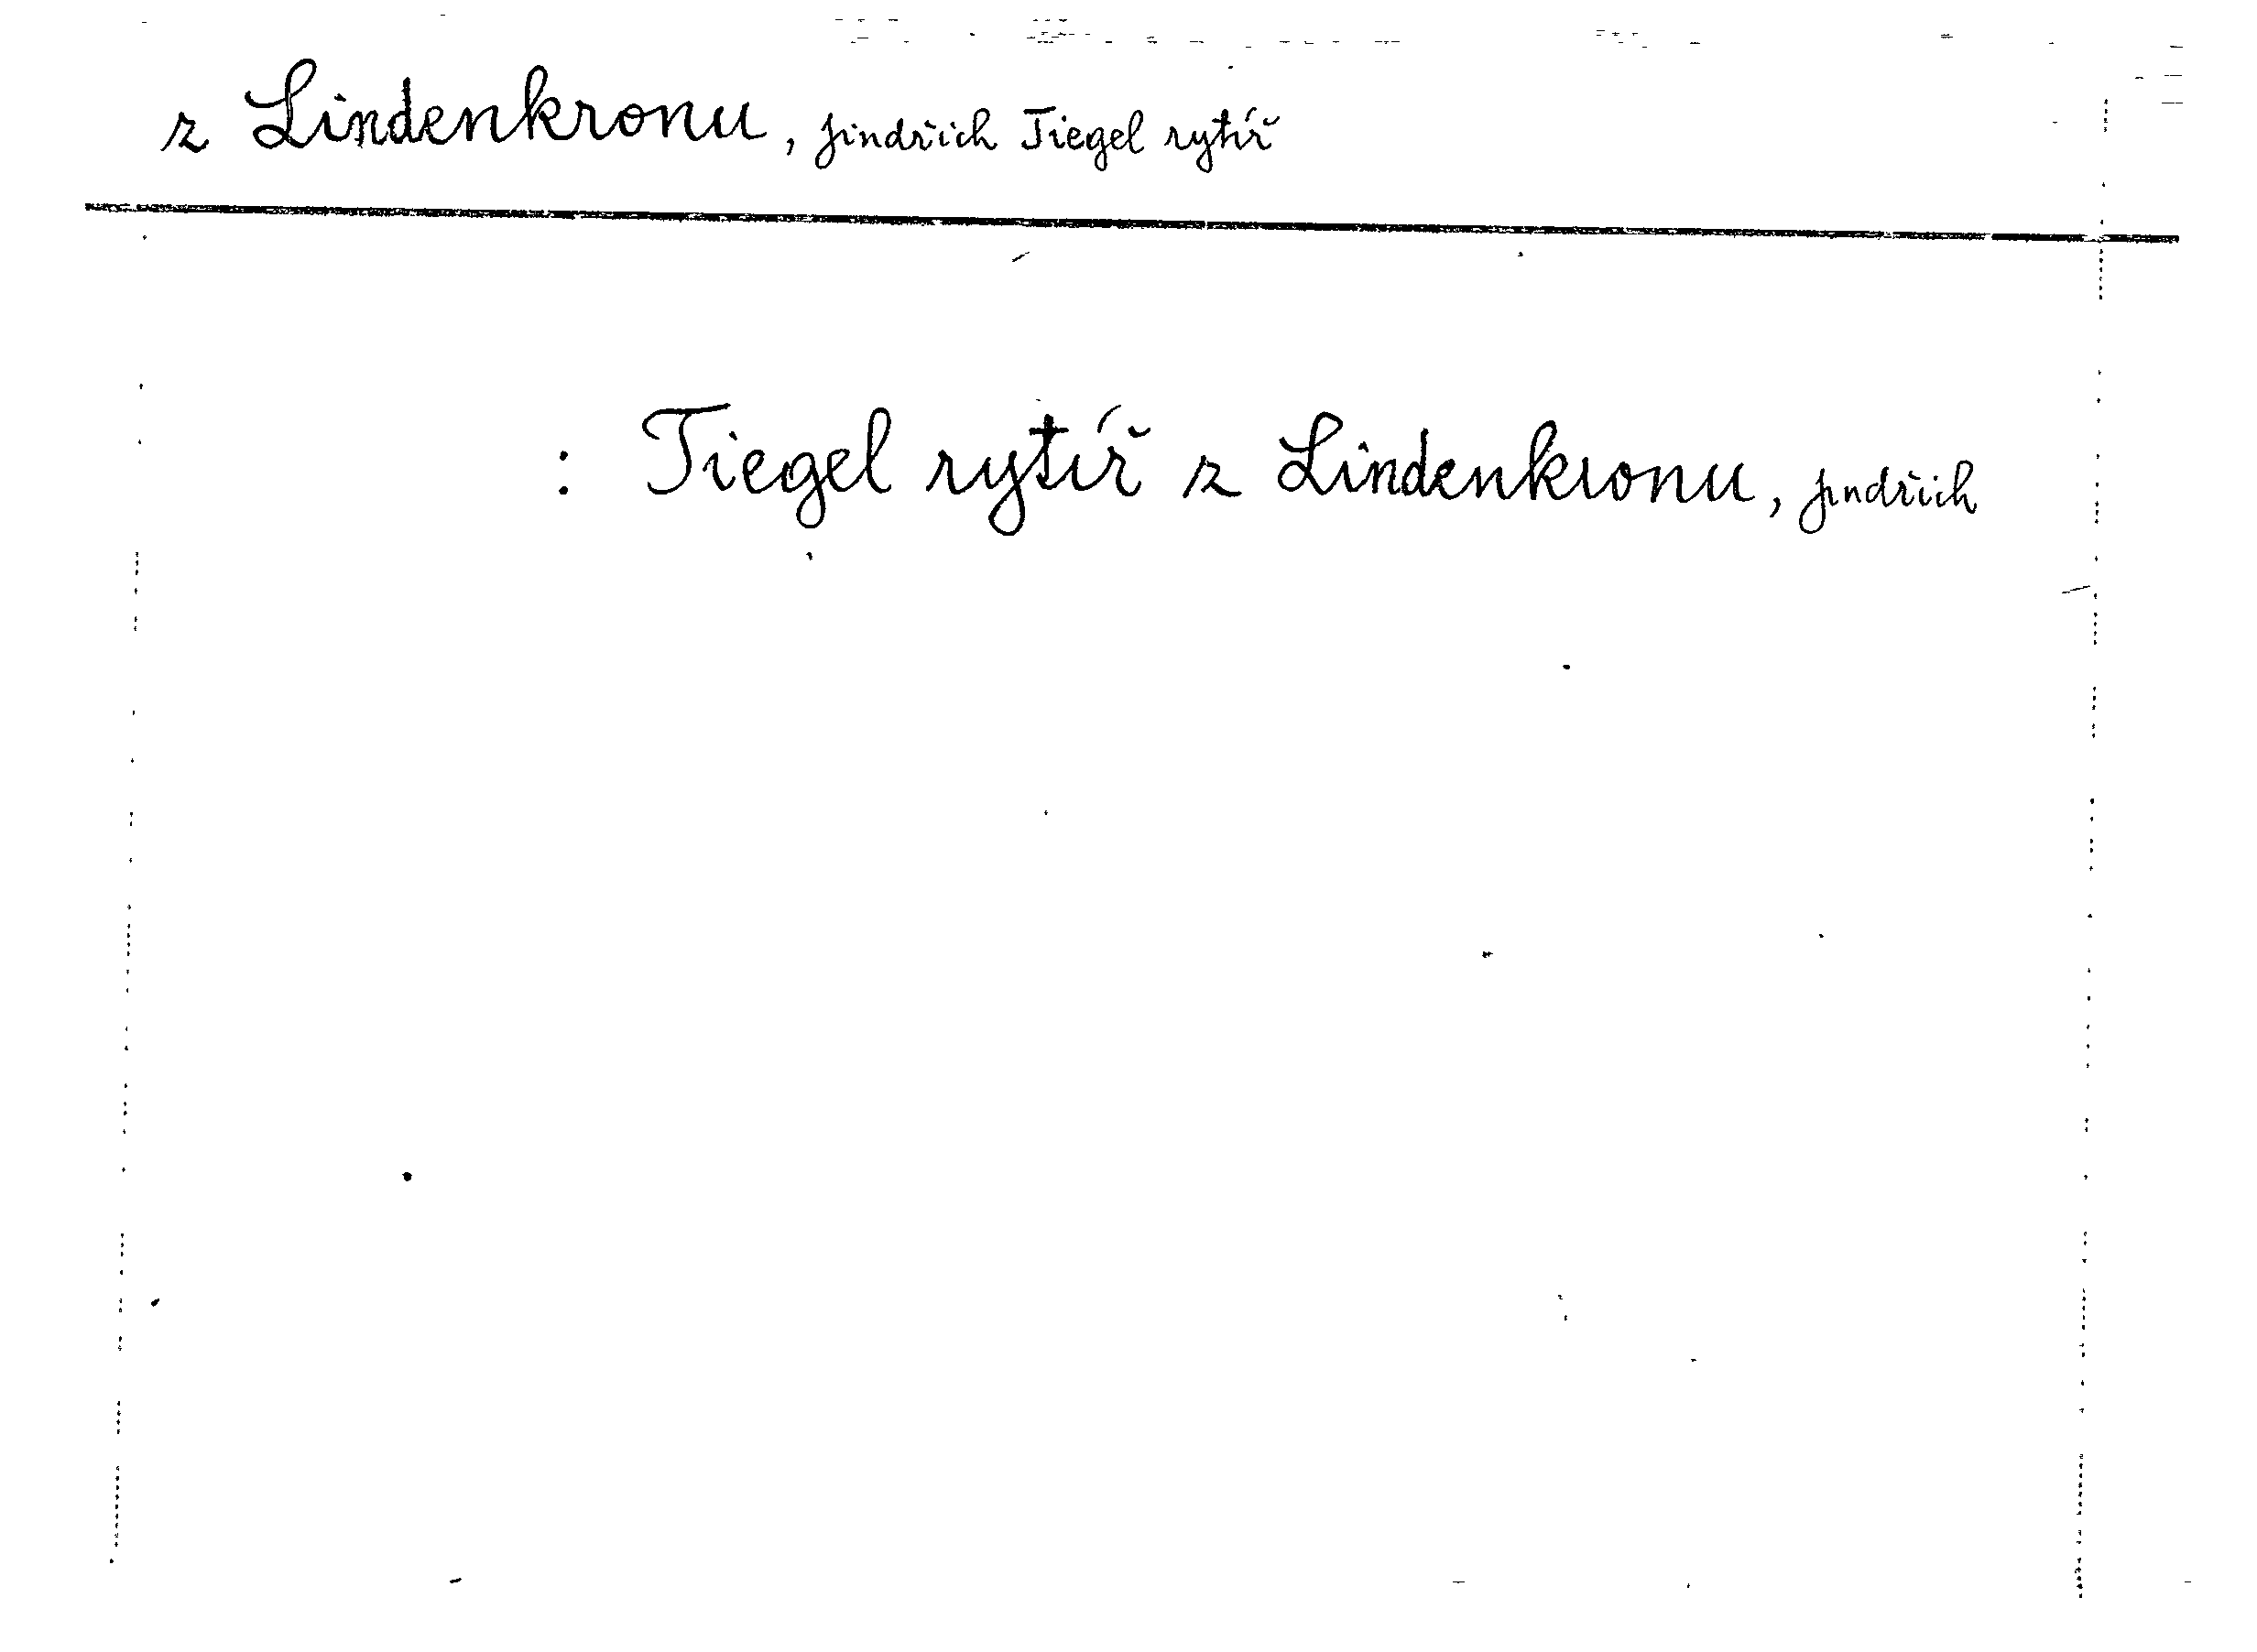 z Lindenkronu, Jindřich Tiegel rytíř
: Tiegel rytíř z Lindenkronu, Jindřich